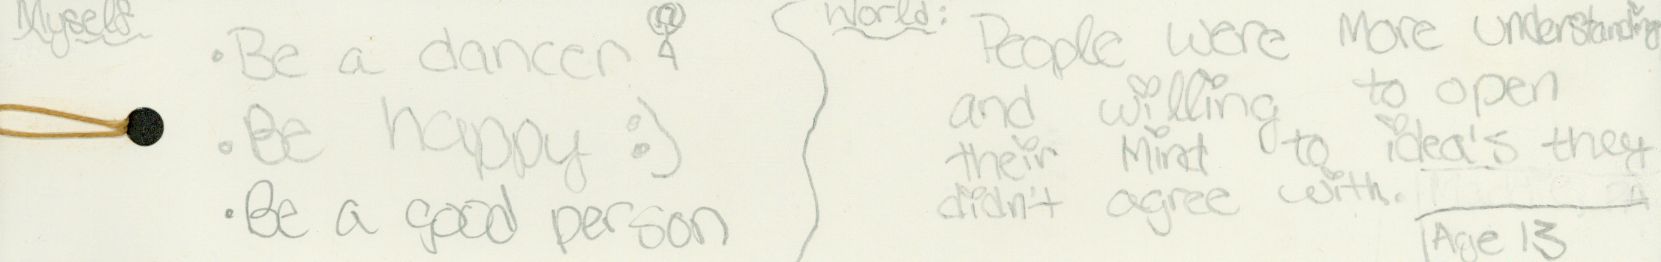 Myself
• Be a dancer
• Be happy :)
• Be a good person
World:
People were more understanding
and willing to open
their mind to idea's they
didn't agree with.
Age 13